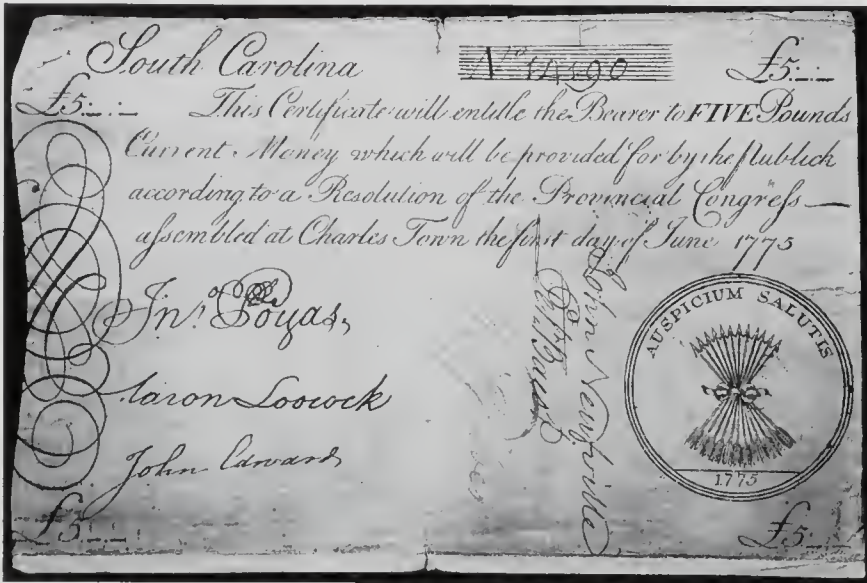 South Carolina
No. 14590
£5
£5
This Certificate will entitle the Bearer to FIVE Pounds
Current Money which will be provided for by the Publick
according to a Resolution of the Provincial Congress
assembled at Charles Town the first day of June 1775
Jno. Poyas,
Aaron Loocock
John Edwards
John Neufville
AUSPICIUM SALUTIS
1775
£5
£5